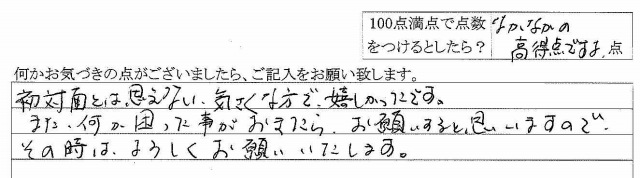 100点満点で点数
をつけるとしたら？
なかなかの
高得点ですよ、点
何かお気づきの点がございましたら、ご記入をお願い致します。
初対面とは、思えない、気さくな方で、嬉しかったです。
また、何か困った事がおきたら、お願いすると、思いますので、
その時は、よろしくお願いいたします。